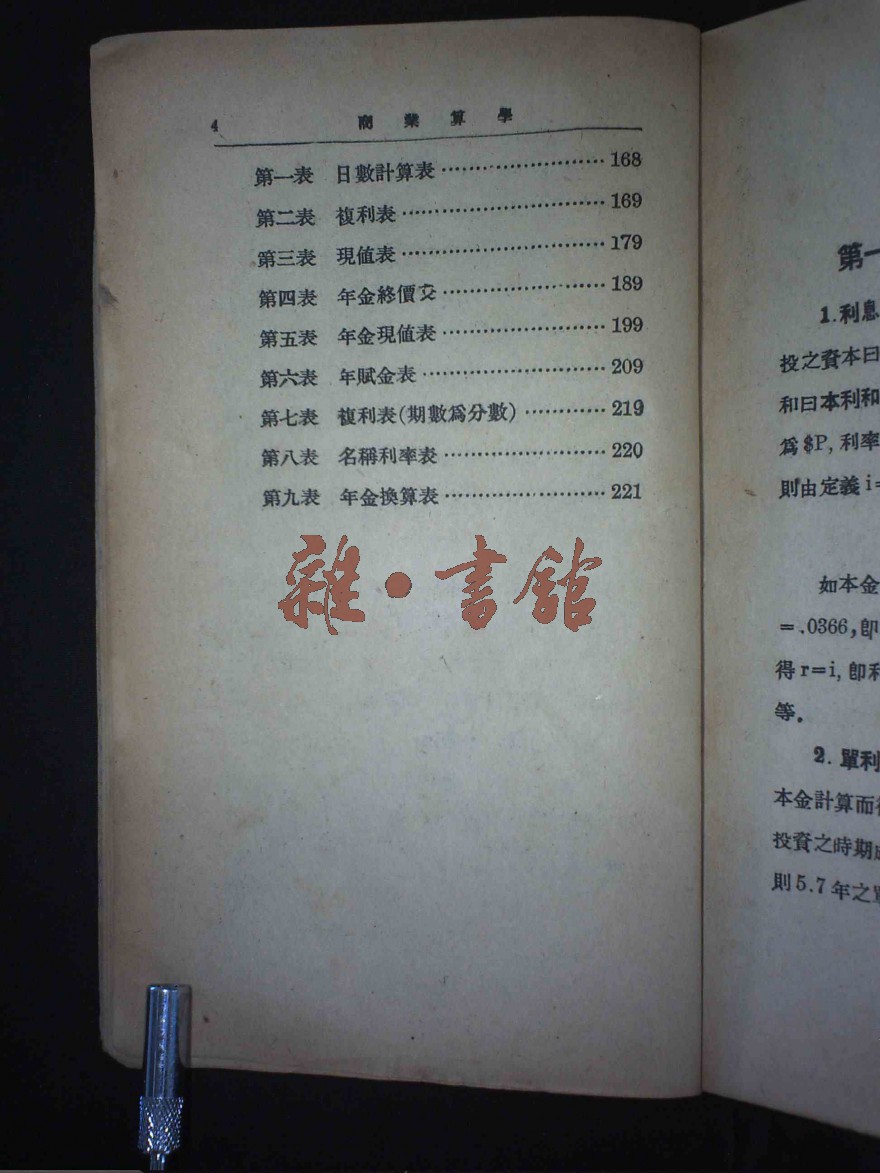 4 商業算學
第一表 日數計算表…………………168
第二表 複利表…………………169
第三表 現值表…………………179
第四表 年金終價交…………………189
第五表 年金現值表…………………199
第六表 年賦金表…………………209
第七表 複利表(期數爲分數)…………219
第八表 名稱利率表…………………220
第九表 年金換算表…………………221
雜·書館
第一
1.利息
投之資本曰
和曰本利和
爲$P,利率
則由定義i=
如本金
=.0366,卽
得r=i,卽利
等。
2.單利
本金計算而
投資之時期
則5.7年之單